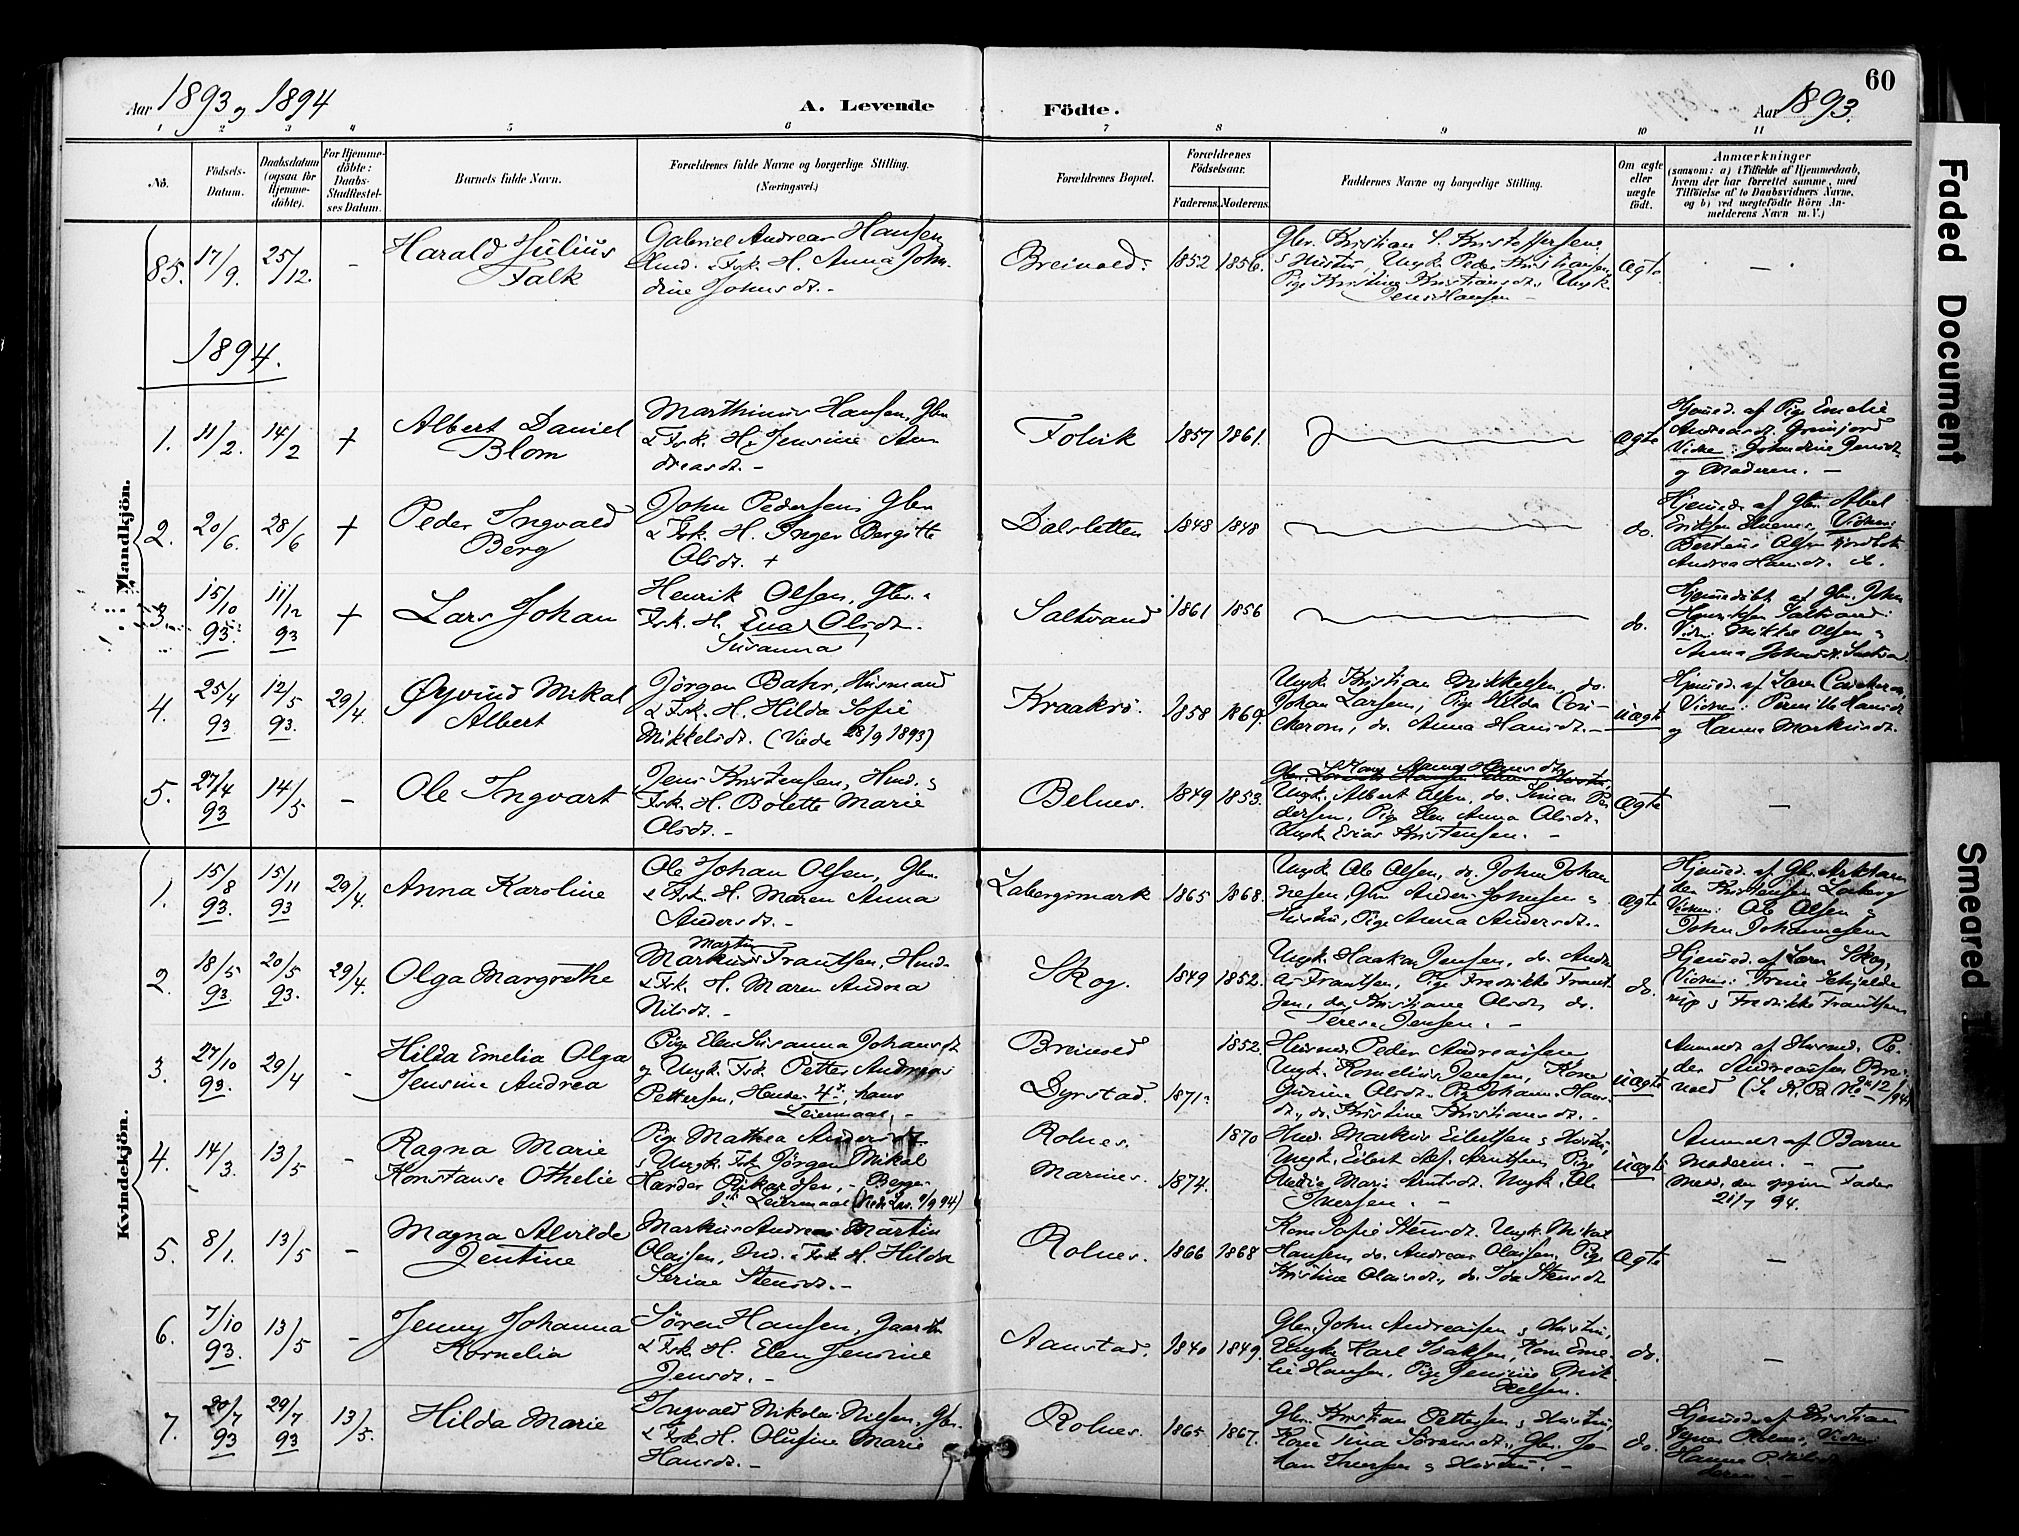 60
Aar 1893 og 1894
A. Levende
Födte.
Aar 1893.
1 2 3 4 5 6 7 8 9 10 11
No.
Födsels-Datum.
Daabsdatum (ogsaa for Hjemme-döbte).
For Hjemme-döbte: Daabs-Stadfæstel-ses Datum.
Barnets fulde Navn.
Forældrenes fulde Navne og borgerlige Stilling. (Næringsvei.)
Forældrenes Bopæl.
Forældrenes Födselsaar.
Faderens. Moderens.
Faddernes Navne og borgerlige Stilling.
Om ægte eller uægte födt.
Anmærkninger
(saasom: a) i Tilfælde af Hjemmedaab,
hvem der har forrettet samme, med
Tilföielse af to Daabsvidners Navne,
og b) ved uægtefödte Börn An-
melderens Navn m. V.)
Mandkjön.
85. 17/9. 25/12. - Harald Julius Falk
Gabriel Andreas Hansen
Hmd. & Fsk. H. Anna John
dine Johnsdt. -
Breivold: 1852 1856.
Gbr. Kristian S. Kristoffersen
s Hustru, Ungk. Peder Kristiansen,
Pige Kristine Kristiansdt, Ungk.
Jens Hansen -
Ægte. -
1894.
1. 11/2. 14/2 + Albert Daniel Blom
Marthinus Hansen, Gbr
& Fsk. H. Jensine An
dreasdt. -
Folvik 1857 1861. ægte
Hjemmed. af Pige Emelie
Andreasdt. Grimjord
Vidner: Johndine Jensdt.
og Moderen. -
2. 20/6. 28/6 + Peder Ingvald Berg
John Pedersen Gbr
& Fsk. H. Inger Bergitte
Olsdt. +
Dalsletten 1848 1848 do.
Hjemmed. af Gbr. Abel
Eriksen
Andrea Hansdt. do.
3. 15/10 93. 11/12 93 + Lars Johan
Henrik Olsen, Gbr. &
Fsk. H. Ena Olsdt.
Susanna
Saltvand 1861 1856 do.
Hjemmedöbt af Gbr. John
Henriksen Saltvand.
Vidn: Mikkel Olsen &
Anna Johnsdt.
4. 25/4 93 12/5 93. 29/4. Øyvind Mikal Albert
Jörgen Bahr, Husmand
& Fsk. H. Hilda Sofie
Mikkelsdt. (Viede 28/9 1893)
Kraakrö. 1858 1869.
Ungk. Kristian Mikkelsen, do.
Johan Larsen, Pige Hilda
do. Anna Hansdt. -
uægte
Hjemmed. af Lærer
Vidner: Hansdt
og Hanna Markusdt.
5. 27/4 93 14/5 - Ole Ingvart
Jens Kristensen, Hmd. &
Fsk. H. Bolette Marie
Olsdt. -
Belnes. 1849 1853.
Ungk. Albert Olsen, do. Simon Pe
dersen, Pige Elen Anna Olsdt.
Ungk Esias Kristensen. -
Ægte -
Kvindekjön.
1. 15/8 93. 15/11 93 29/4. Anna Karoline
Ole Johan Olsen, Gbr.
& Fsk. H. Maren Anna
Andersdt. -
Labergsmark 1865 1868.
Ungk Ole Olsen, do. John Johan
nesen, Gbr Anders Johnsen s
Hustru, Pige Anna Andersdt. -
ægte
Hjemmed. af Gbr.
Kristensen Laberg
Vidner: Ole Olsen &
John Johannesen
2. 18/5 93. 20/5 93. 29/4. Olga Margrethe
Martin
Markus Frantsen, Hmd.
& Fsk. H. Maren Andrea
Nilsdt. -
Skog. 1849 1852.
Ungk Haakon Jensen, do. Andre
as Frantsen, Pige Fredrikke Frant
sen, do Kristiane Olsdt, do.
Terese Jensen. -
do.
Hjemmed. af Lærer Skog,
Vidner: Trine Schjelde
rup & Fredrikke Frantsen
3. 27/10 93. 29/4 - Hilda Emelia Olga Jensine Andrea
Pige Elen Susanna Johansdt
og Ungk. Fsk. Petter Andreas
Pettersen, Hendes 4de, hans
Leiermaal. -
Breivold Dyrstad. 1871. 1852.
Husmd. Peder Andreassen
Ungk. Kornelius Jensen, Kone
Gurine Olsdt. Pig Johanna Hans
dt., do. Kristine Kristiansdt. -
uægte
Anmeldt af Husmd. Pe
der Andreassen Brei
vold (S. K. B. No 12/94)
4. 14/3. 13/5 - Ragna Marie Konstanse Othelie
Pige Mathea Andersdt.
& Ungk. Fsk Jörgen Mikal
Harder Rikardsen, - Begges
1ste Leiermaal
Rolnes. Marines. 1874. 1870
Hmd. Markus Eilertsen s Hustru,
Ungk. Eilert Arntsen, Pige
Marie Arntsdt. Ungk. Ole
Iversen. -
uægte
Anmeldt af Barne
Moderen. -
21/7 94.
5. 8/1. 13/5 - Magna Alvilde Jentine
Markus Andreas Martin
Olaisen, Ind. & Fsk. H. Hilda
Serine Stensdt. -
Rolnes. 1866 1868
Kone Sofie Stensdt. Ungk. Mikal
Hansen, do. Andreas Olaisen, Pige
Kristine Olaisdt., do. Ida Stensdt
Ægte -
6. 7/10 93. 13/5 - Jenny Johanna Kornelia
Sören Hansen, Gaardbr
& Fsk. H. Elen Jensine
Jensdt. -
Aanstad. 1840 1849.
Gbr. John Andreassen s Hustru,
Ungk. Karl Isaksen, Kone Eme
lie Hansen, Pige Jensine Mik
kelsen.
do. -
7. 20/7 93 29/7 93 13/5. Hilda Marie
Ingvald Nikolai Nilsen, Gbr.
& Fsk. H. Olufine Marie
Hansdt. -
Rolnes. 1865 1867.
Gbr. Kristian Pettersen s Hustru,
Kone Tina Sörensdt, Gbr. Jo
han Iversen s Hustru. -
do.
Hjemmed. af Kristian
Rolnes, Vidner
Hanna
Faded Document
Smeared